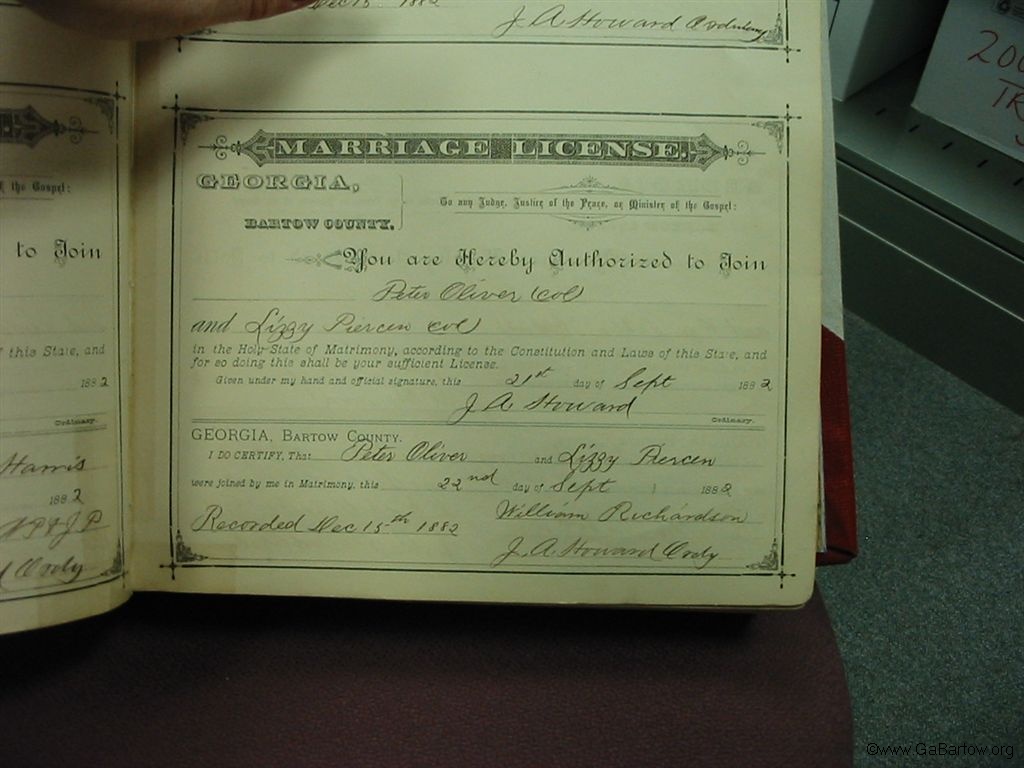 Dec 15 1882
J A Howard Ordinary
MARRIAGE LICENSE.
GEORGIA,
BARTOW COUNTY.
To any Judge, Justice of the Peace, or Minister of the Gospel:
You are Hereby Authorized to Join
Peter Oliver (col)
and Lizzy Piercen (col)
in the Holy State of Matrimony, according to the Constitution and Laws of this State, and
for so doing this shall be your sufficient License.
Given under my hand and official signature, this 21st day of Sept 1882
J A Howard
Ordinary.
GEORGIA, BARTOW COUNTY.
I DO CERTIFY, That Peter Oliver and Lizzy Piercen
were joined by me in Matrimony, this 22nd day of Sept 1882
William Richardson
Recorded Dec 15th 1882
J. A. Howard Ordy
of the Gospel:
to Join
f this State, and
1882
Ordinary.
Harris
1882
J P
Ordy
200
TR
©www.GaBartow.org